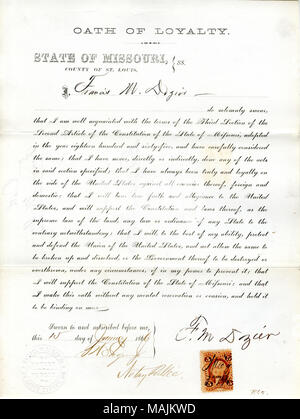 OATH OF LOYALTY.
STATE OF MISSOURI, } SS.
COUNTY OF ST. LOUIS,
I, Francis M. Dozier
do solemnly swear,
that I am well acquainted with the terms of the Third Section of the
Second Article of the Constitution of the State of Missouri, adopted
in the year eighteen hundred and sixty-five, and have carefully considered
the same; that I have never, directly or indirectly, done any of the acts
in said section specified; that I have always been truly and loyally on
the side of the United States against all enemies thereof, foreign and
domestic; that I will bear true faith and allegiance to the United
States, and will support the Constitution and laws thereof, as
the supreme law of the land, any law or ordinance of any State to the
contrary notwithstanding; that I will to the best of my ability, protect
and defend the Union of the United States, and not allow the same to
be broken up and dissolved, or the Government thereof to be destroyed or
overthrown, under any circumstances, if in my power to prevent it; that I
will support the Constitution of the State of Missouri; and that I
make this oath without any mental reservation or evasion, and hold it
to be binding on me.
Sworn to and subscribed before me,
this day of January 186
F. M. Dozier
Notary Public
a alamy
Image ID: MAJKWD
www.alamy.com